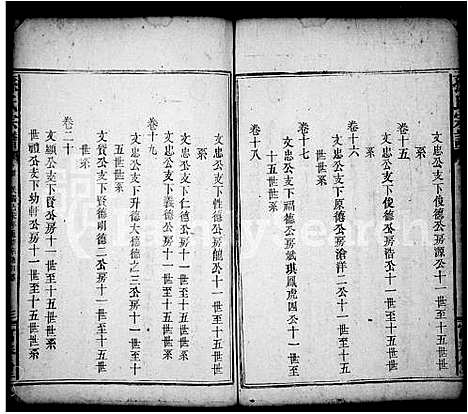 文忠公支下俊德公房源公十一世至十五世世
系
卷十五
文忠公支下俊德公房浩公十一世至十五世世
系
卷十六
文忠公支下原德公房滄洋二公十一世至十五
世世系
卷十七
文忠公支下福德公房斌琪鳳虎四公十一世至
十五世世系
卷十八
文忠公支下性德公房能公十一世至十五世世
系
文忠公支下仁德公房十一世至十五世世系
文忠公支下義德公房十一世至十五世世系
卷十九
文忠公支下升德大德德之三公房十一世至十
五世世系
文忠公支下賢德明德二公房十一世至十五世
世系
卷二十
文顯公支下賢公房十一世至十五世世系
世禮公支下幼軒公房十一世至十五世世系